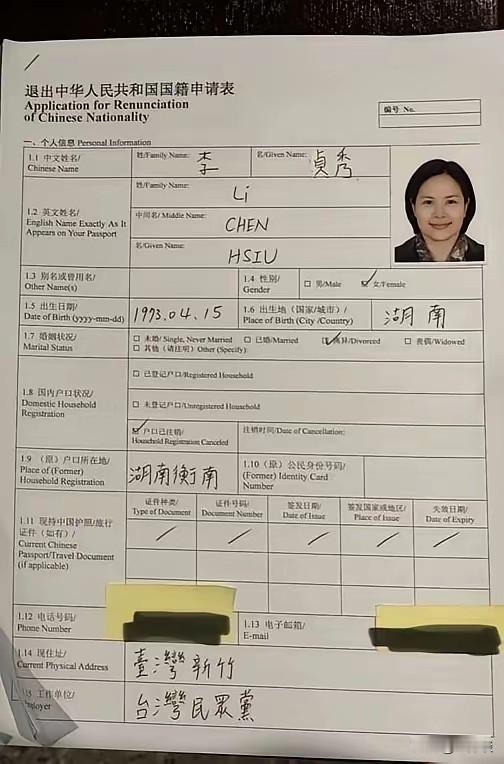 退出中华人民共和国国籍申请表
Application for Renunciation
of Chinese Nationality
编号 No.
一、个人信息 Personal Information
1.1 中文姓名/
Chinese Name
姓/Family Name:
李
名/Given Name:
貞秀
1.2 英文姓名/
English Name Exactly As It
Appears on Your Passport
姓/Family Name:
Li
中间名/ Middle Name:
CHEN
名/Given Name:
HSIU
1.3 别名或曾用名/
Other Name(s)
1.4 性别/
Gender
男/Male
女/Female
1.5 出生日期/
Date of Birth (yyyy-mm-dd)
1973.04.15
1.6 出生地（国家/城市）/
Place of Birth (City /Country)
湖南
1.7 婚姻状况/
Marital Status
未婚/ Single, Never Married
已婚/Married
离异/Divorced
丧偶/Widowed
其他（请注明）Other (Specify):
1.8 国内户口状况/
Domestic Household
Registration
已登记户口/Registered Household
未登记户口/Unregistered Household
户口已注销/
Household Registration Canceled
注销时间/Date of Cancellation:
1.9（原）户口所在地/
Place of (Former)
Household Registration
湖南衡南
1.10（原）公民身份号码/
(Former) Identity Card
Number
1.11 现持中国护照/旅行
证件（如有）/
Current Chinese
Passport/Travel Document
(if applicable)
证件种类/
Type of Document
证件号码/
Document Number
签发日期/
Date of Issue
签发国家或地区/
Place of Issue
失效日期/
Date of Expiry
1.12 电话号码/
Phone Number
1.13 电子邮箱/
E-mail
1.14 现住址/
Current Physical Address
臺灣新竹
工作单位/
台灣民眾黨